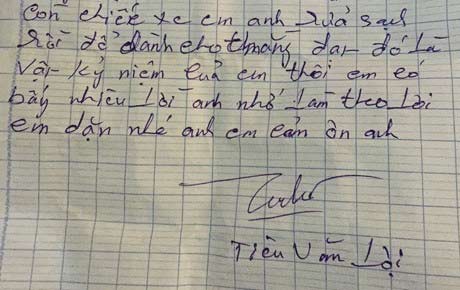 Còn chiếc xe em anh rửa sạch
rồi để dành cho thằng đạt đó là
vật kỷ niệm của em thôi em có
bấy nhiêu lời anh nhớ làm theo lời
em dặn nhé anh em cảm ơn anh
Tiêu Văn Lợi